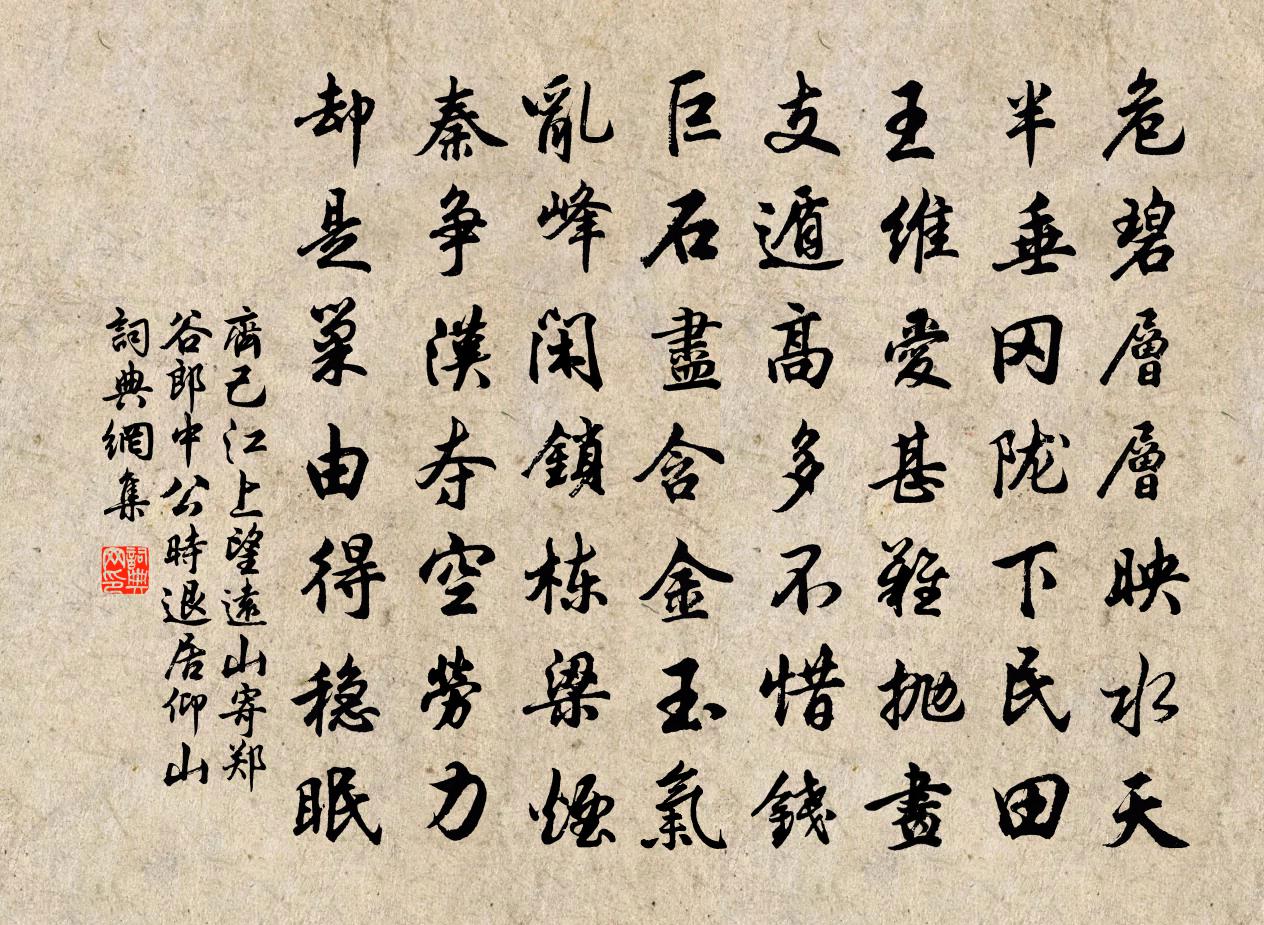 危碧層層映水天
半垂冈陇下民田
王維愛甚難拋畫
支遁高多不惜錢
巨石盡含金玉氣
亂峰閑鎖栋梁煙
秦爭漢夺空勞力
却是巢由得穩眠
齊己江上望遠山寄郑
谷郎中公時退居仰山
詞典網集
詞典网印